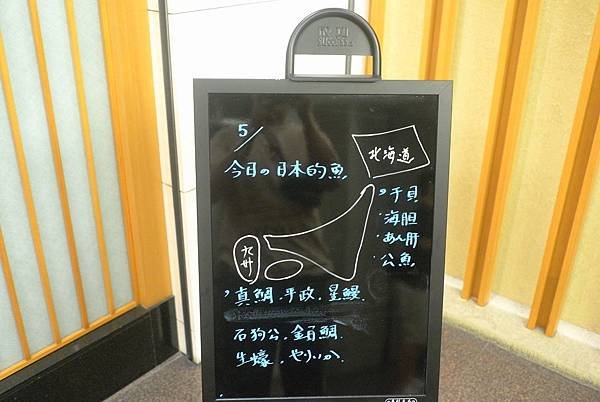 5/
今日の日本的魚
北海道
干貝
海胆
あん肝
公魚
九州
真鯛.平政.星鰻
石狗公.金目鯛
生蠔.やりいか